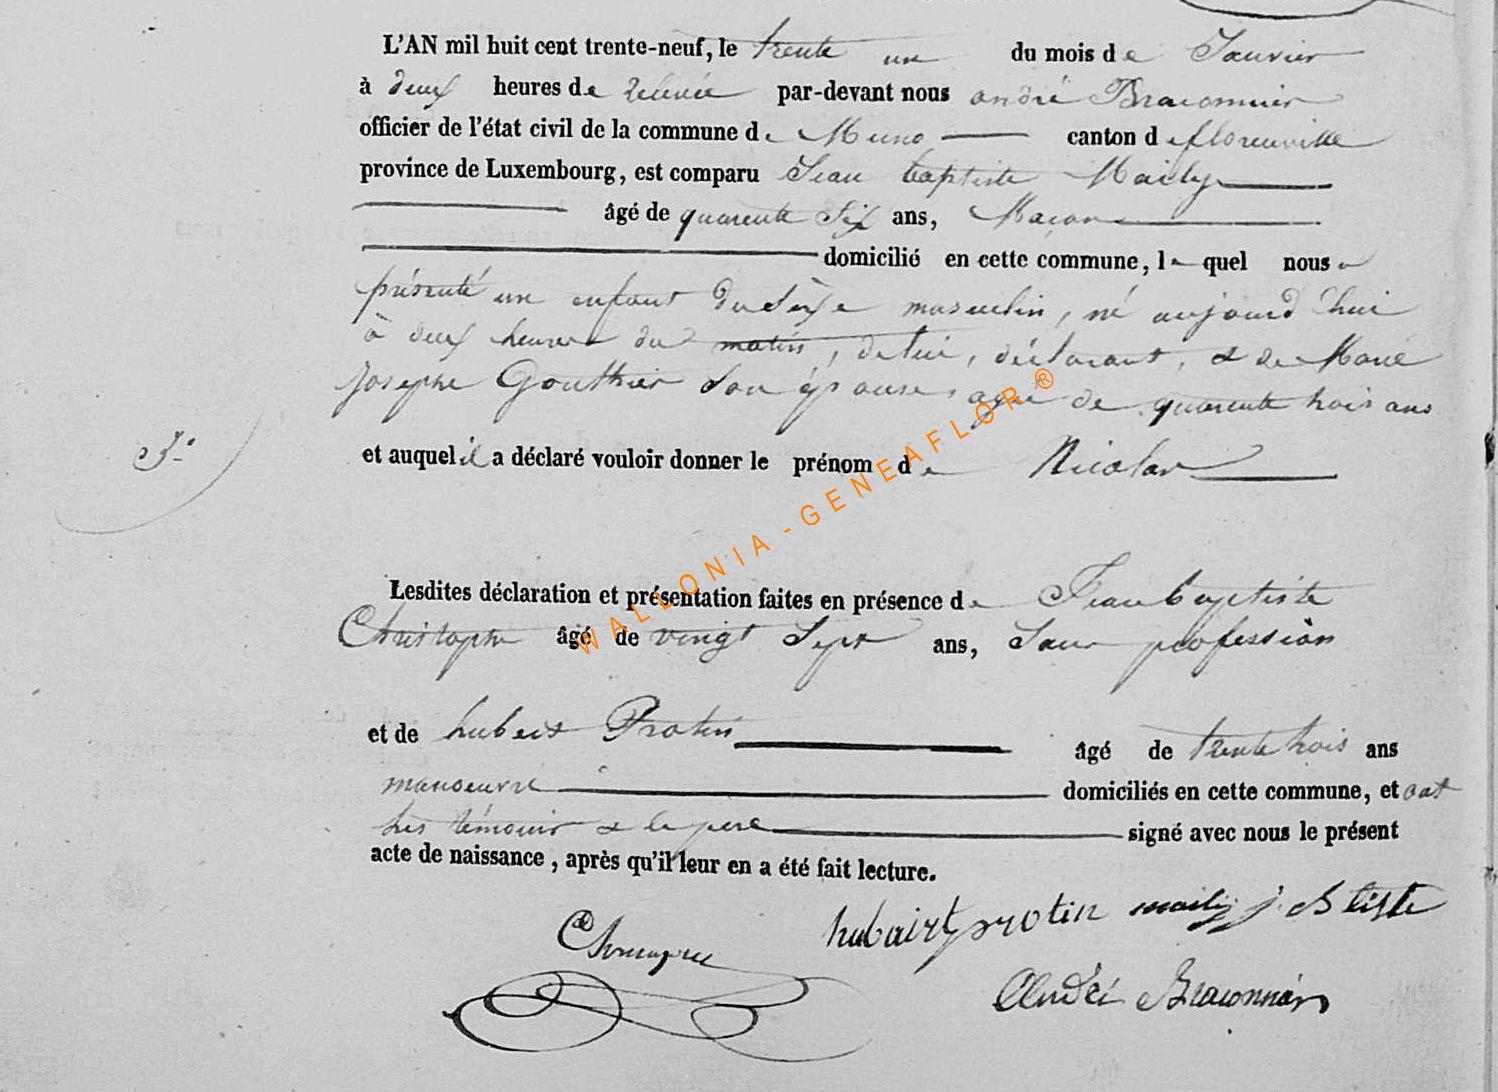 L'AN mil huit cent trente-neuf, le trente un du mois de Janvier
à deux heures de relevée par-devant nous andré Braconnier
officier de l'état civil de la commune de Muno canton de florenville
province de Luxembourg, est comparu Jean baptiste Maily
âgé de quarente Six ans, Maçon
domicilié en cette commune, lequel nous a
présenté un enfant du Sexe masculin, né aujourd'hui
à deux heures du matin, de lui, déclarant, & de Marie
Josephe Gouthier Son épouse, agée de quarente trois ans
et auquel il a déclaré vouloir donner le prénom de Nicolas
Lesdites déclaration et présentation faites en présence de Jean baptiste
Christophe âgé de vingt Sept ans, Sans profession
et de hubert Protin âgé de trente trois ans
manoeuvre domiciliés en cette commune, et ont
les témoins & le pere signé avec nous le présent
acte de naissance, après qu'il leur en a été fait lecture.
hubairt protin maily j. Btiste
André Braconnier
WALLONIA - GENEAFLOR ®